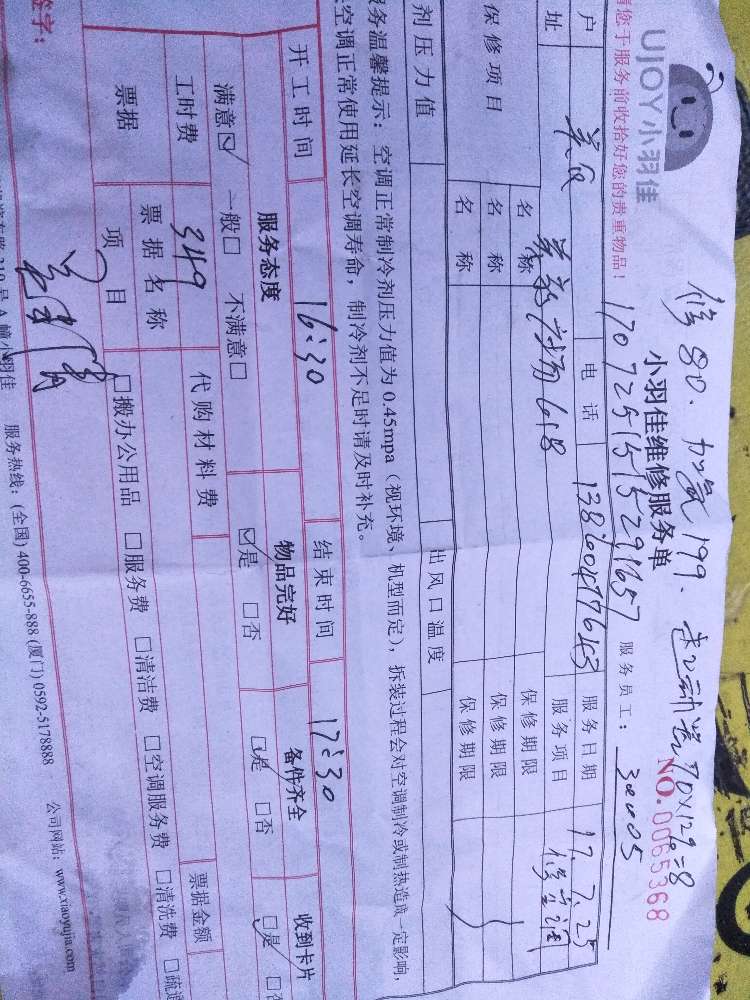 UJOY小羽佳
修80. 加氟199.
小羽佳维修服务单
NO.0065368
您于服务前收拾好您的贵重物品！
服务员工：
30005
户
电话
服务日期 17.7.25
址
服务项目 修空调
保修项目
名称
保修期限
名称
保修期限
名称
保修期限
剂压力值
出风口温度
务温馨提示：空调正常制冷剂压力值为0.45mpa（视环境、机型而定），拆装过程会对空调制冷或制热造成一定影响，
空调正常使用延长空调寿命，制冷剂不足时请及时补充。
开工时间 16:30 结束时间 17:30
服务态度 物品完好 备件齐全 收到卡片
满意 一般 不满意 是 否 是 否 是 否
工时费 349 代购材料费
票据 票据名称 票据金额
项目 搬办公用品 服务费 清洁费 空调服务费 清洗费
签字：
号A幢小羽佳 服务热线：(全国) 400-6655-888 (厦门) 0592-5178888 公司网站：www.xiaoyujia.com